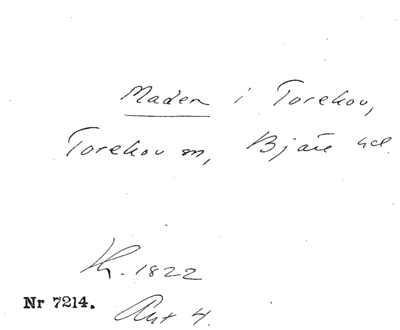 Maden i Torekov,
Torekov sn, Bjäre hd.
Kh. 1822
Nr 7214.
Akt 4.